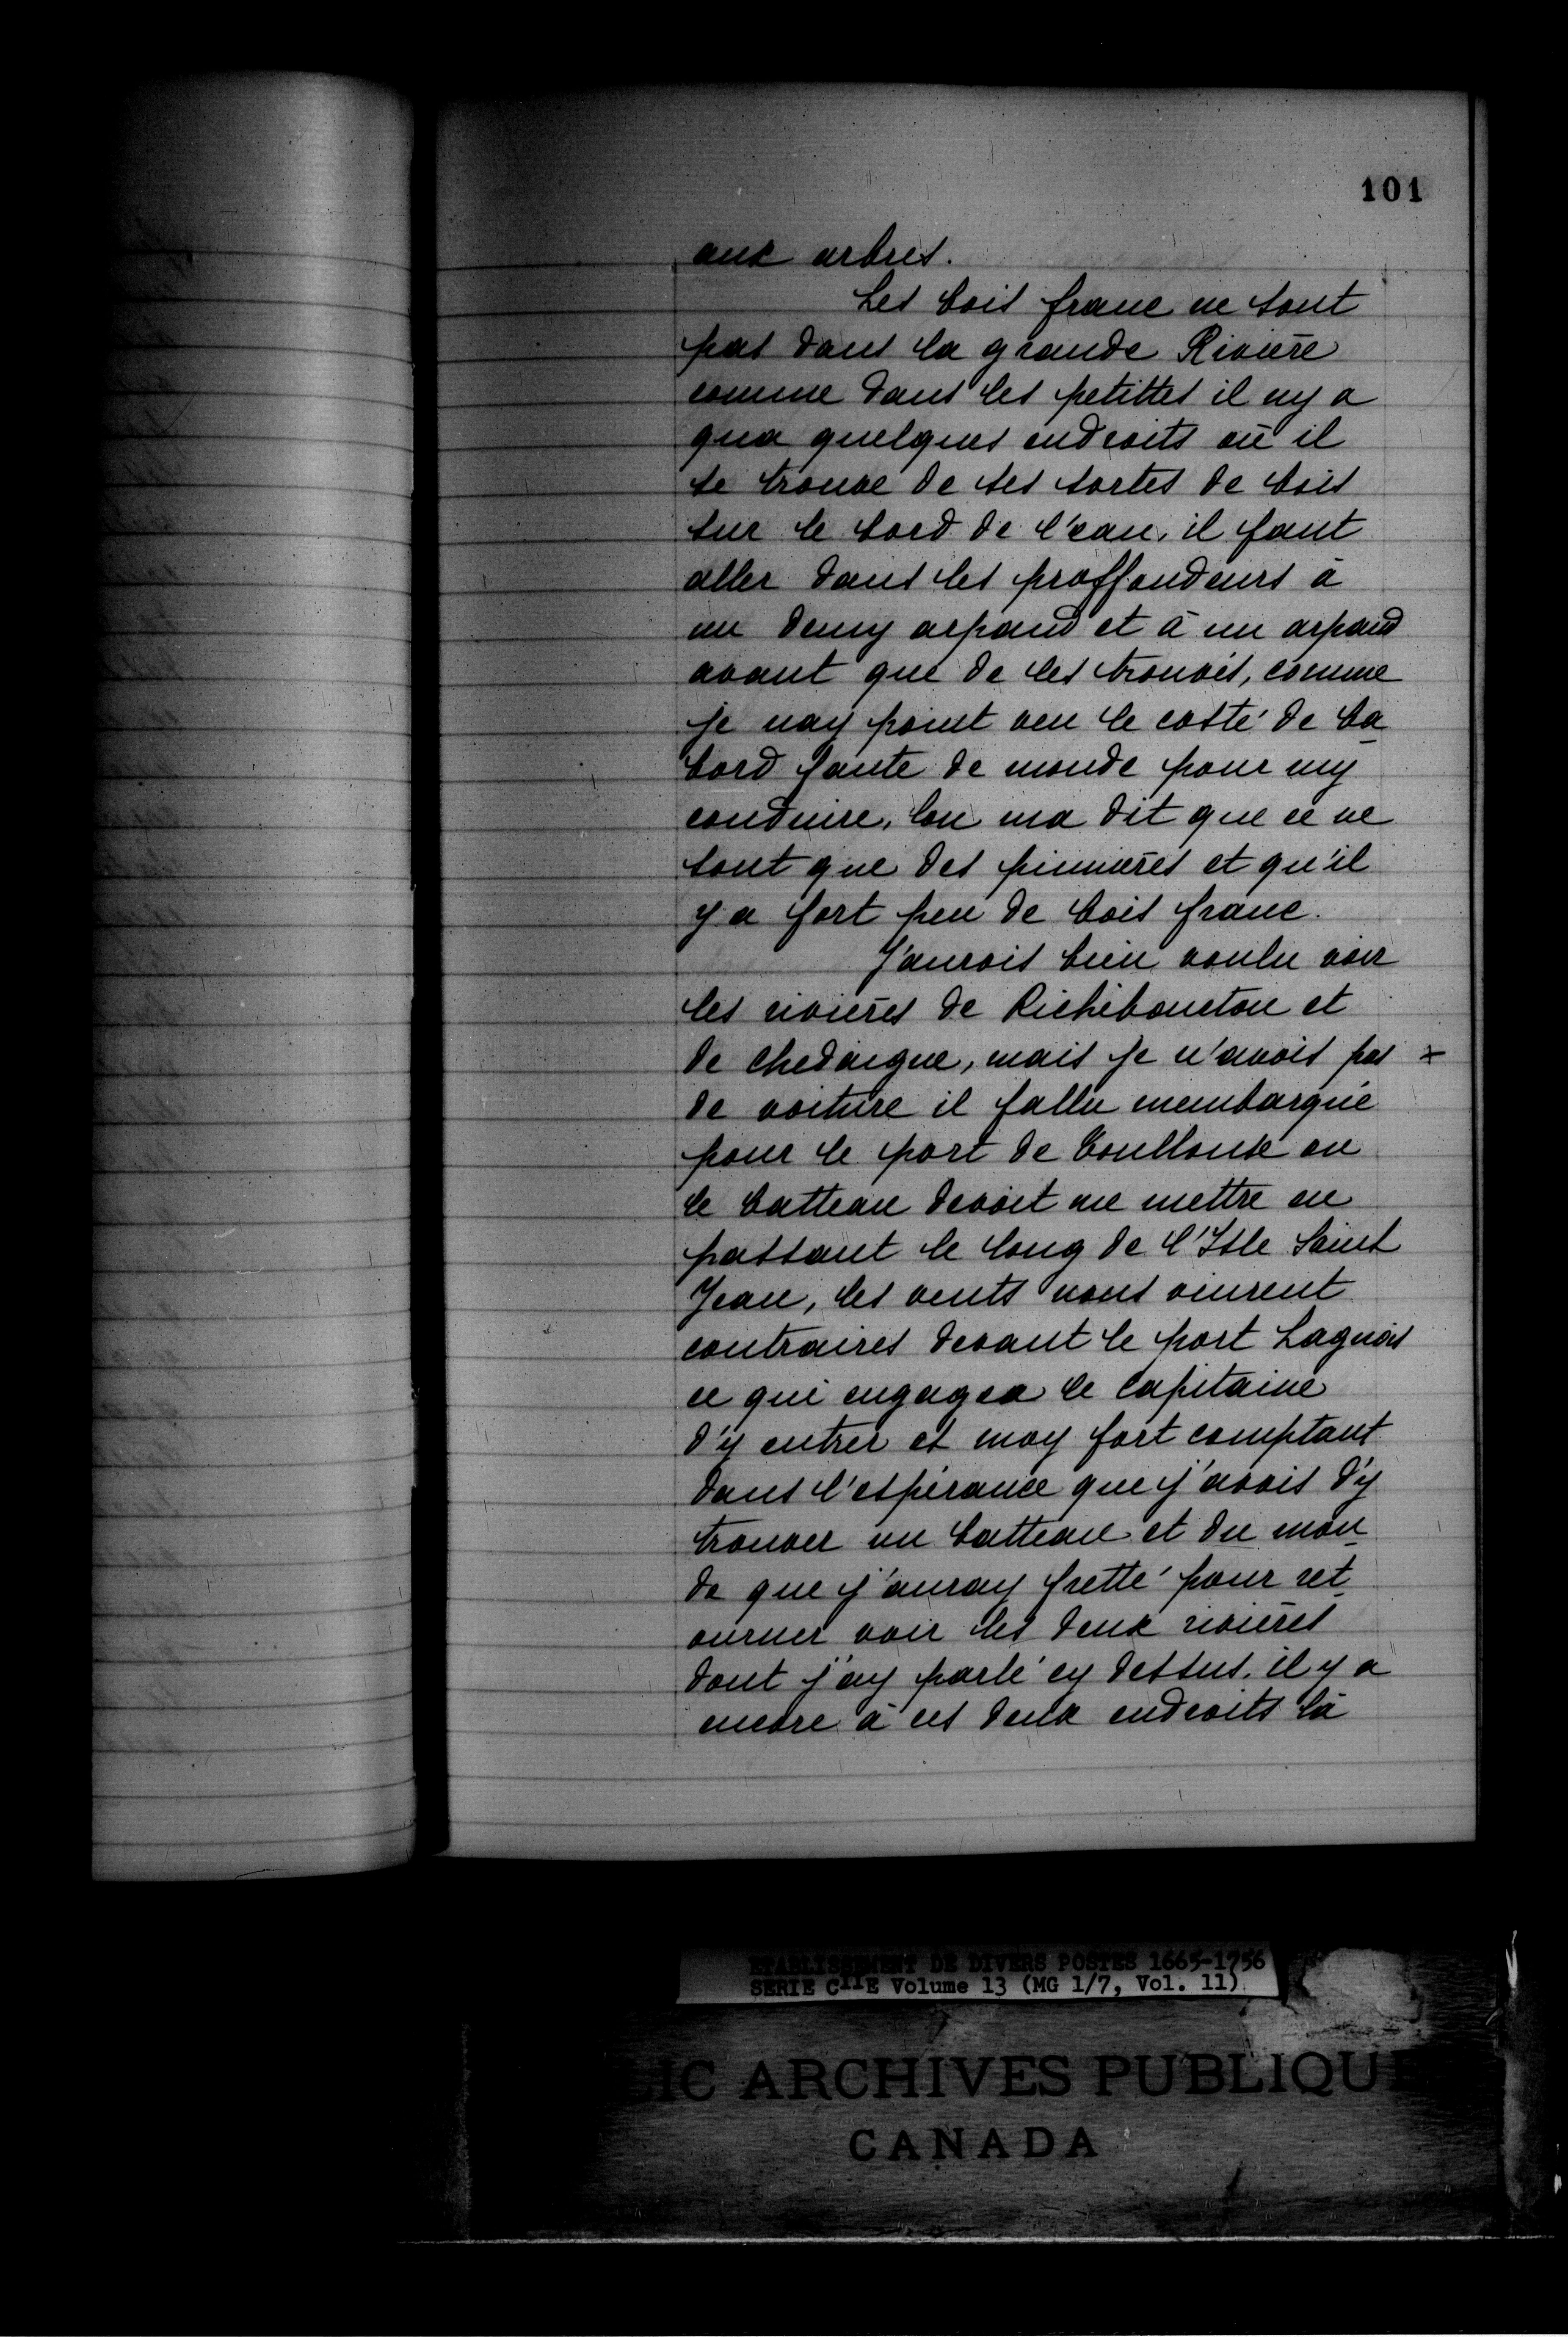 101
aux arbres.
Les bois franc ne sont
pas dans la grande Rivière
comme dans les petittes il ny a
qua quelques endroits où il
se trouve de ses sortes de bois
sur le bord de l'eau, il faut
aller dans les proffondeurs à
un demy arpand et à un arpand
avant que de les trouvés, comme
je nay point veu le costé de ba
bord faute de monde pour my
conduire, lon ma dit que ce ne
sont que des pinnières et qu'il
y a fort peu de bois franc.
J'aurois bien voulu voir
les rivières de Richiboucton et
de chedaique, mais je n'avois pas x
de voiture il fallu membarqué
pour le port de
le batteau devoit me mettre en
passant le long de l'Isle Saint
Jean, les vents nous vinrent
contraires devant le port Lagnois
ce qui engagea le capitaine
d'y entrer et moy fort comptant
dans l'espérance que j'avois d'y
trouver un batteau et du mon
de que j'auray fretté pour ret
ourner voir les deux rivières
dont j'ay parlé cy dessus. il y a
encore à ces deux endroits là
ETABLISSEMENT DE DIVERS POSTES 1665-1756
SERIE C11E Volume 13 (MG 1/7, Vol. 11)
LIC ARCHIVES PUBLIQUE
CANADA